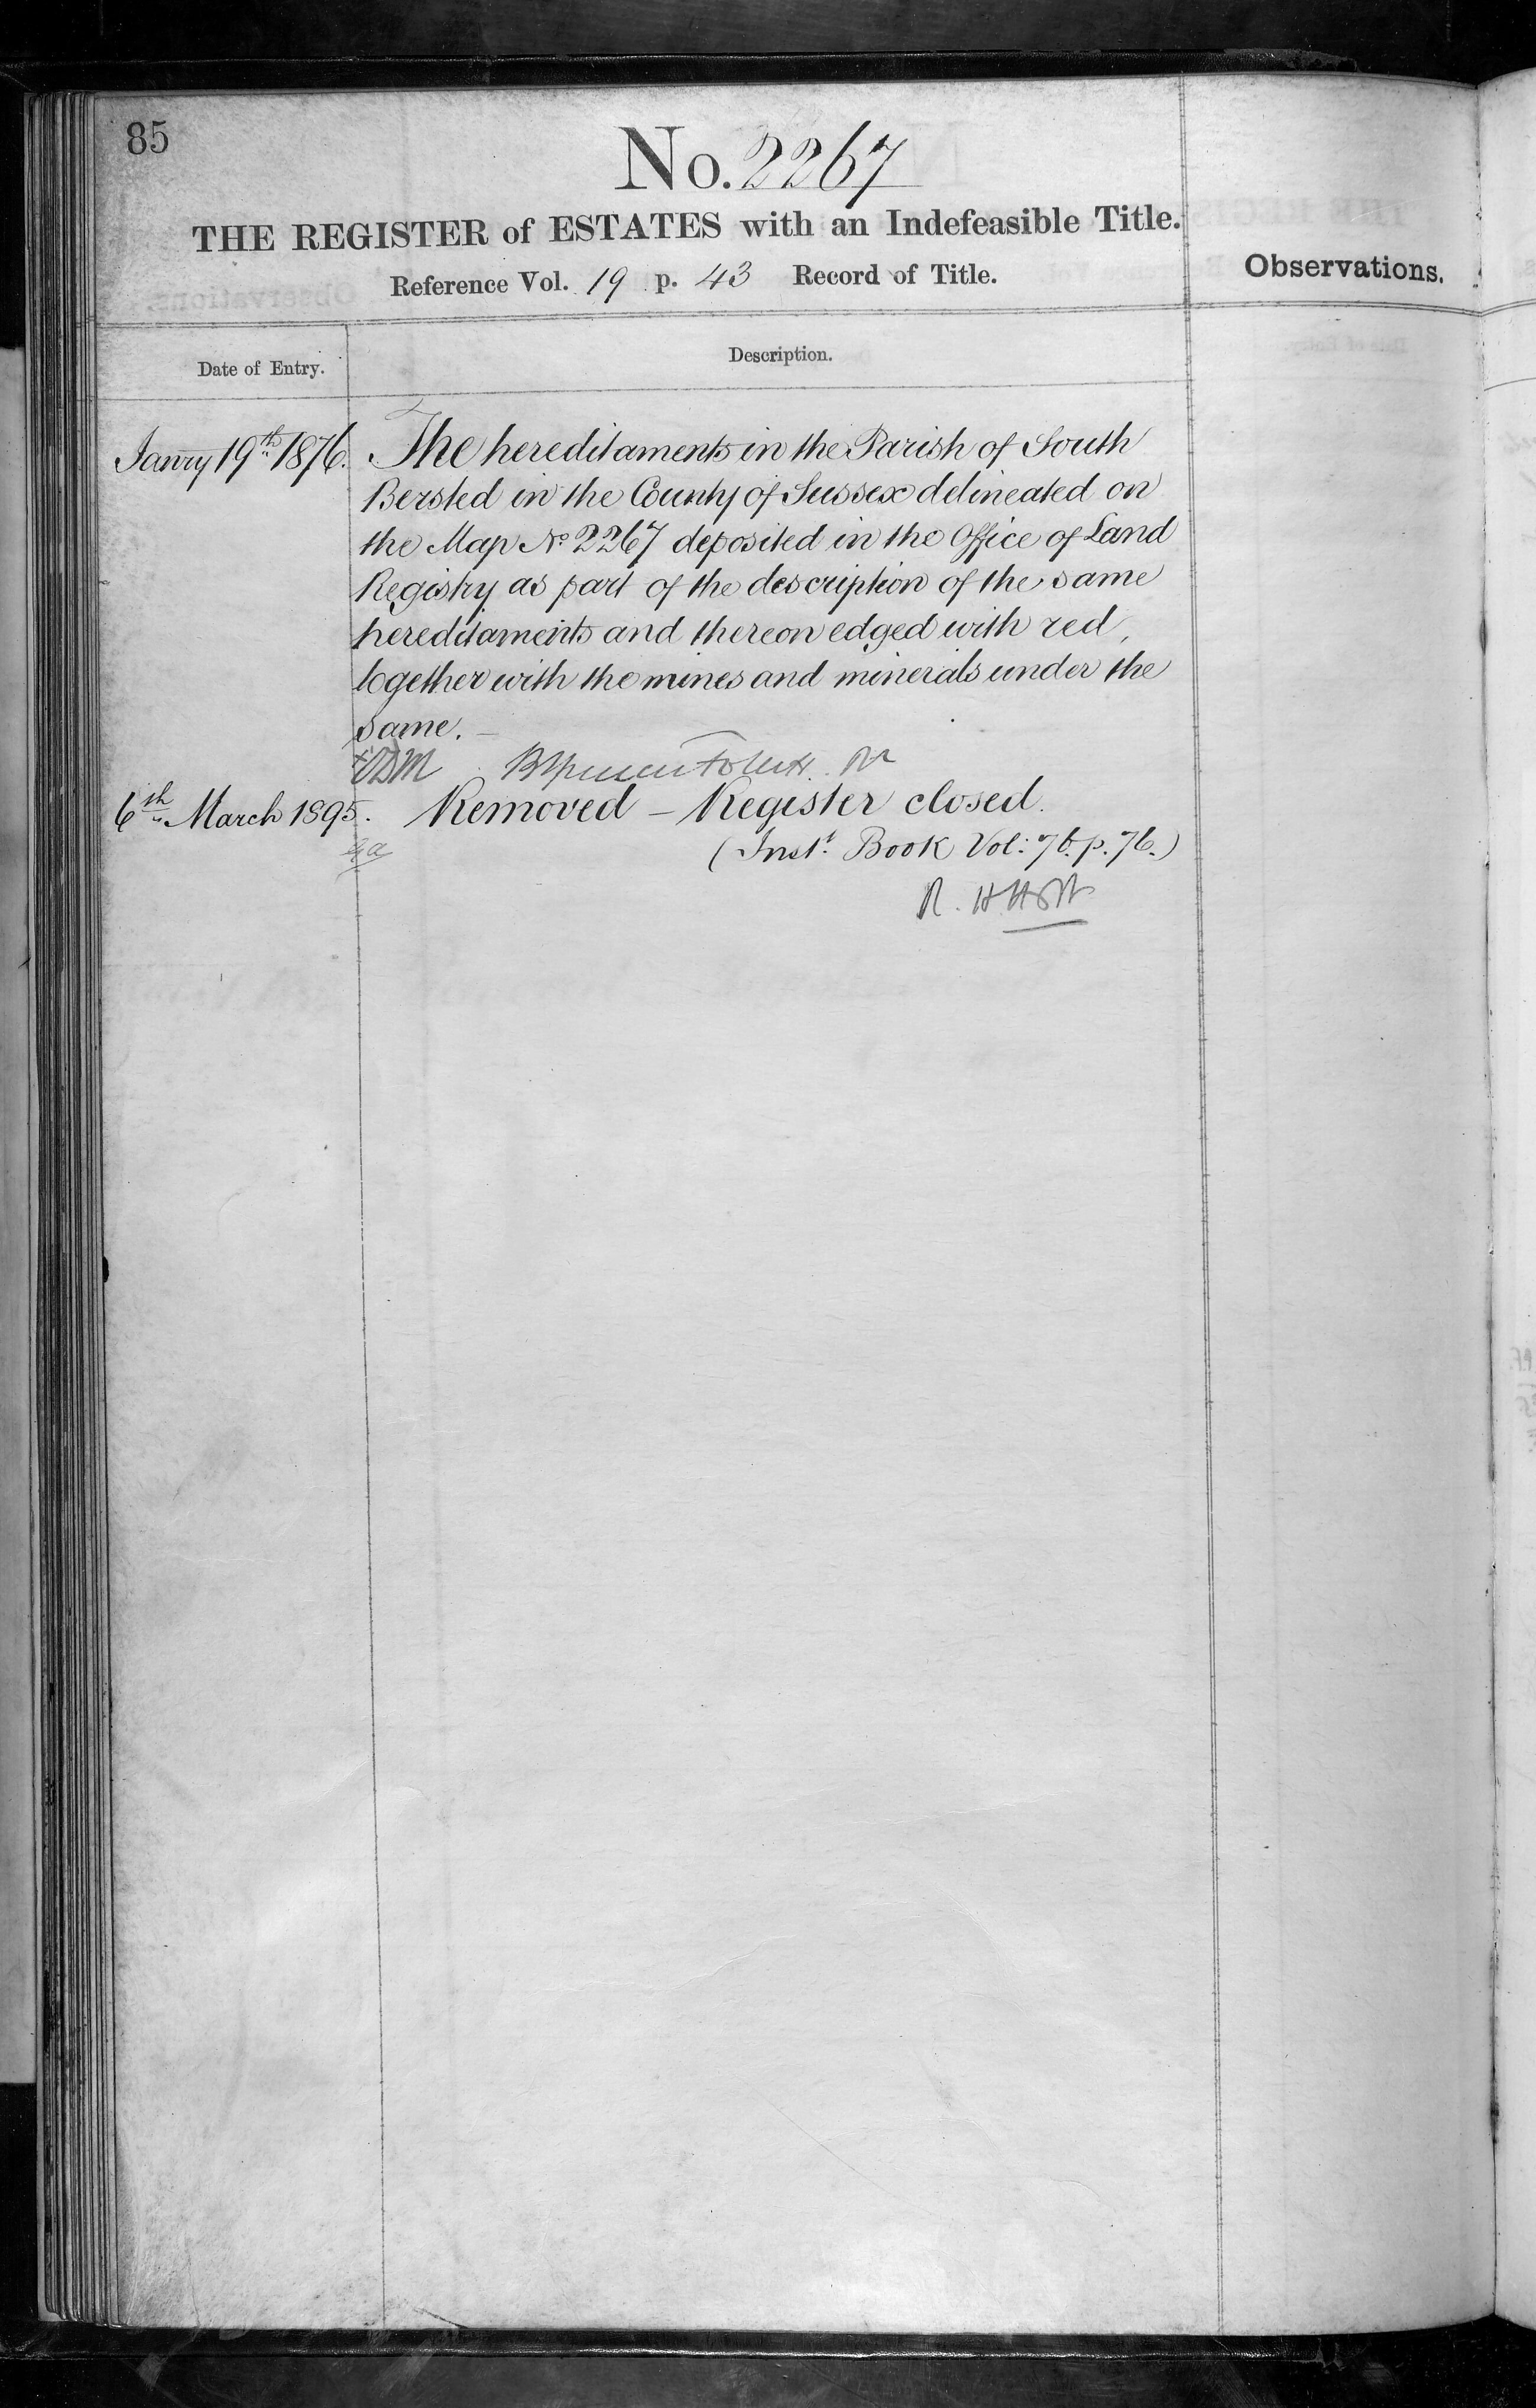 85
No. 2267
THE REGISTER of ESTATES with an Indefeasible Title.
Reference Vol. 19 p. 43 Record of Title.
Observations.
Date of Entry.
Description.
Janry 19th 1876. The hereditaments in the Parish of South
Bersted in the County of Sussex delineated on
the Map No. 2267 deposited in the Office of Land
Registry as part of the description of the same
hereditaments and thereon edged with red,
together with the mines and minerals under the
same.
6th March 1895. Removed – Register closed.
(Inst. Book Vol: 76. p. 76.)